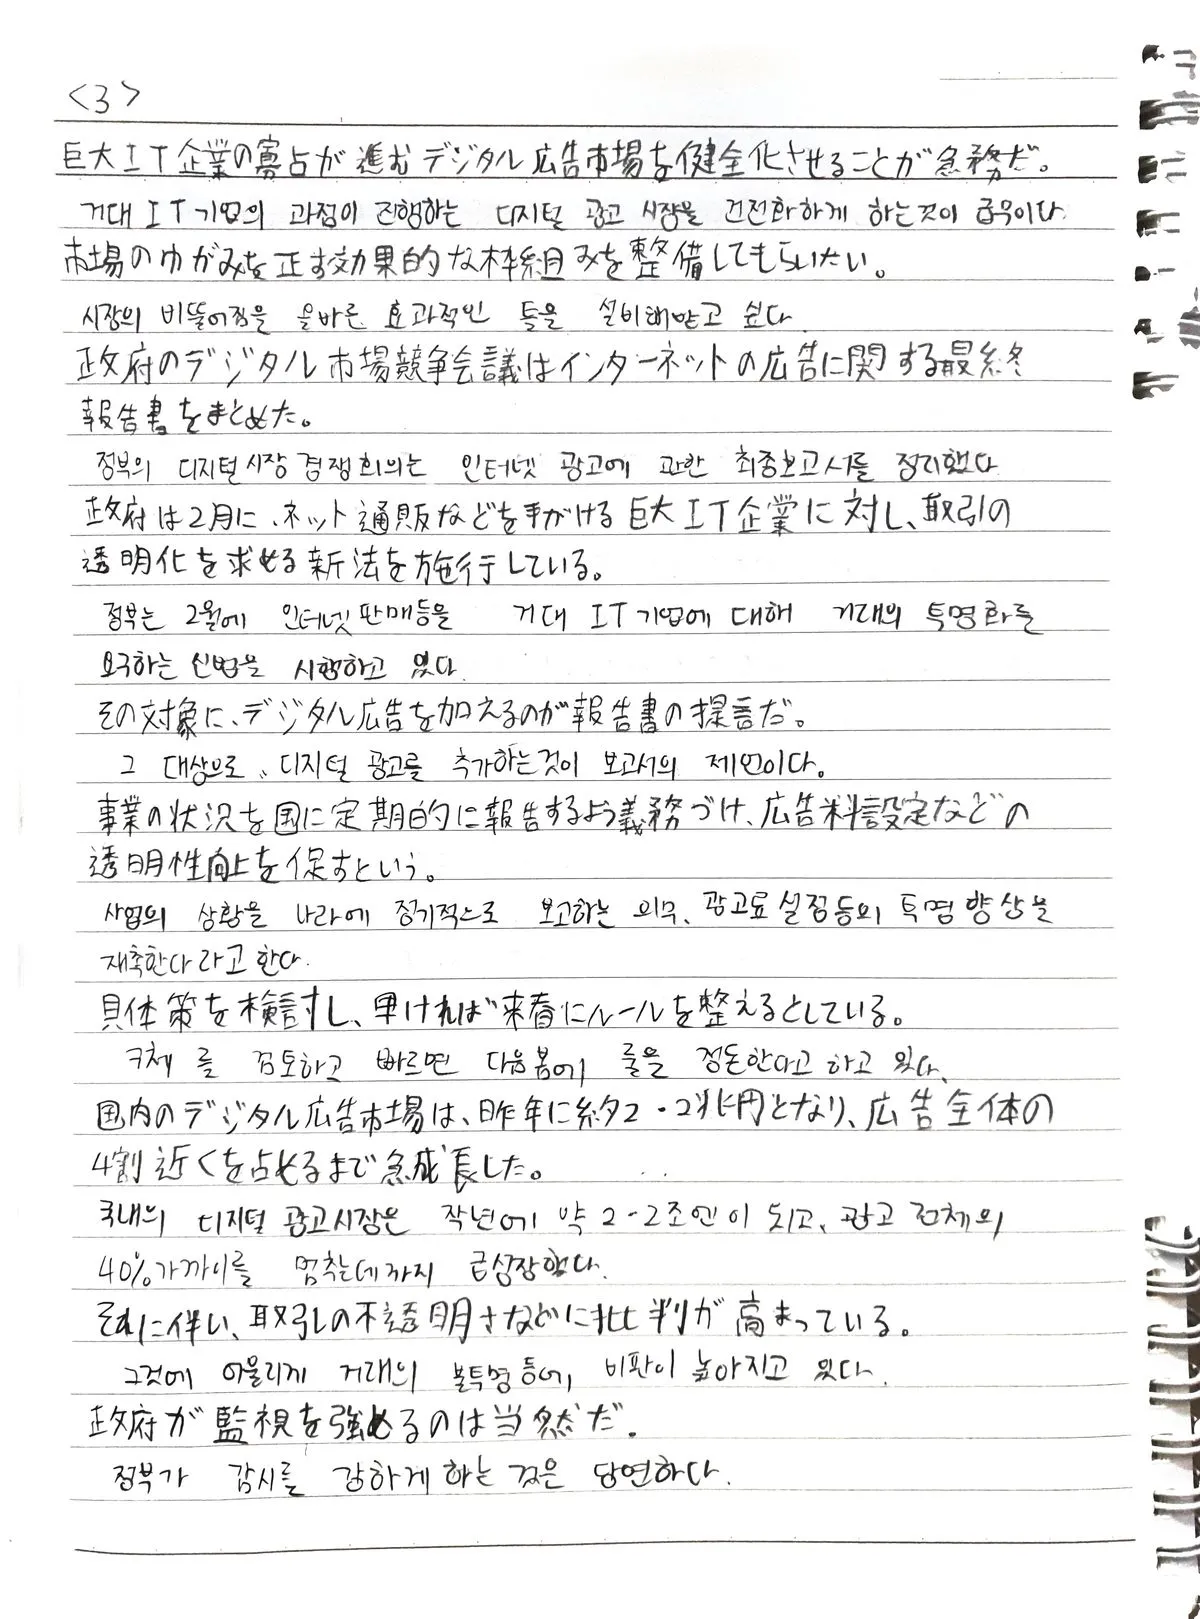 <3>
巨大IT企業の寡占が進むデジタル広告市場を健全化させることが急務だ。
거대 IT기업의 과점이 진행하는 디지털 광고 시장을 건전화하게 하는것이 급무이다.
市場のゆがみを正す効果的な枠組みを整備してもらいたい。
시장의 비뚤어짐을 올바른 효과적인 틀을 설비해받고 싶다.
政府のデジタル市場競争会議はインターネットの広告に関する最終
報告書をまとめた。
정부의 디지털시장 경쟁회의는 인터넷 광고에 관한 최종보고서를 정리했다.
政府は2月に、ネット通販などを手がける巨大IT企業に対し、取引の
透明化を求める新法を施行している。
정부는 2월에 인터넷판매등을 거대 IT기업에 대해 거래의 투명화를
요구하는 신법을 시행하고 있다.
その対象に、デジタル広告を加えるのが報告書の提言だ。
그 대상으로、디지털 광고를 추가하는것이 보고서의 제언이다.
事業の状況を国に定期的に報告するよう義務づけ、広告料設定などの
透明性向上を促すという。
사업의 상황을 나라에 정기적으로 보고하는 의무、광고료설정등의 투명향상을
재촉한다라고 한다.
具体策を検討し、早ければ来春にルールを整えるとしている。
구체를 검토하고 빠르면 다음봄에 룰을 정돈한다고 하고 있다.
国内のデジタル広告市場は、昨年に約2・2兆円となり、広告全体の
4割近くを占めるまで急成長した。
국내의 디지털 광고시장은 작년에 약 2・2조엔이 되고、광고 전체의
40%가까이를 멈추는데까지 급성장했다.
それに伴い、取引の不透明さなどに批判が高まっている。
그것에 어울리게 거래의 불투명등에, 비판이 높아지고 있다.
政府が監視を強めるのは当然だ.
정부가 감시를 강하게 하는 것은 당연하다.